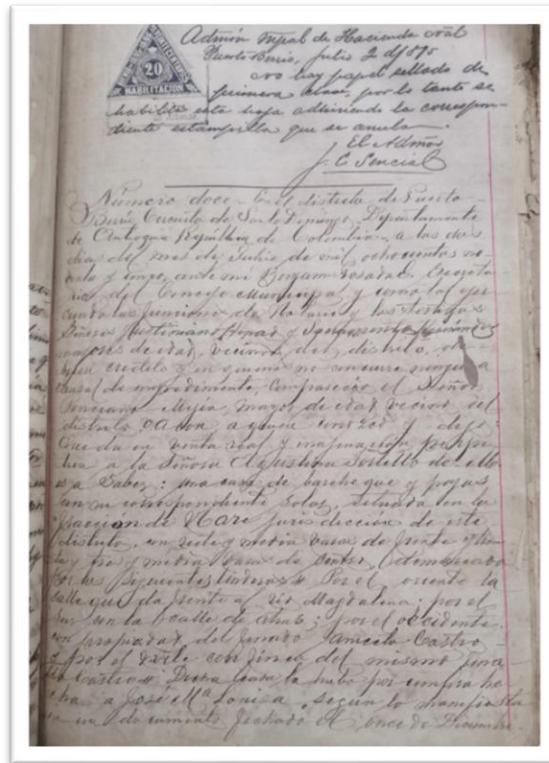 20
HABILITACION
Admón mpal de Hacienda nal
Puerto Berrío, Julio 2 d/ 895
No hay papel sellado de
primera clase, por lo tanto se
habilita esta hoja adhiriendo la correspon-
diente estampilla que se anula.
El Admor
Número doce. En el distrito de Puerto
Berrío Circuito de Santo Domingo, Departamento
de Antioquia República de Colombia, a los dos
dias del mes de Julio de mil ochocientos no-
venta y cinco, ante mi Benjamin Secreta-
rio del Concejo Municipal y como tal ejer-
ciendo las funciones de Notario y los testigos
Señores Justiniano y
mayores de edad, vecinos del distrito, de
buen crédito y en quienes no concurre ninguna
causal de impedimento, compareció el Señor
Mejía, mayor de edad vecino del
distrito a quien conozco y dijo:
Que da en venta real y enajenación perpe-
tua a la Señora Agustina de
a saber: una casa de bareque y pajas
con su correspondiente solar, situada en la
fracción de Nare jurisdicción de este
distrito, con siete y media varas de frente y
y tres y media varas de centro, demarcado
por los siguientes linderos: Por el oriente la
calle que da frente al río Magdalena; por el
sur con la calle de; por el occidente
con propiedad del finado Aniceto Castro
y por el Norte con finca del mismo fina-
do Castro. Dicha casa la hubo por compra he-
cha a José Mª, según lo manifiesta
en un documento fechado el once de Diciembre